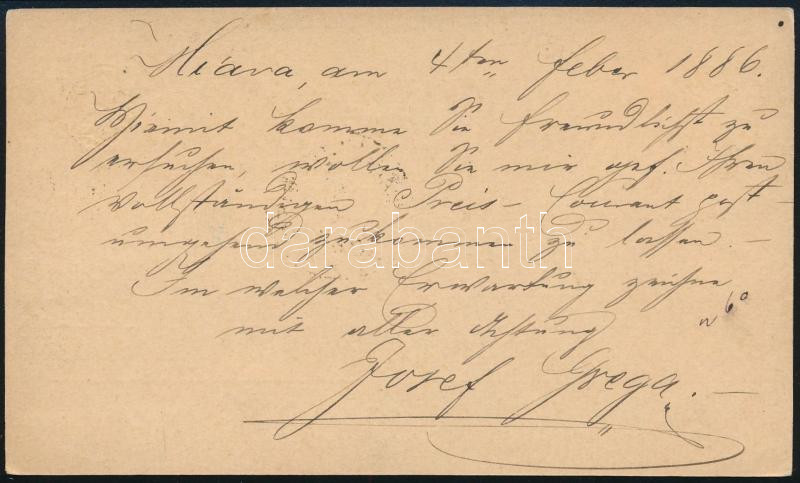 Miava, am 4ten Feber 1886.
Hiemit komme Sie freundlichst zu
ersuchen, wollen Sie mir gef. Ihren
vollständigen Preis-Courant post-
umgehend zukommen zu lassen. —
In welcher Erwartung zeichne
mit aller Achtung
Josef Grega. —
darabanth